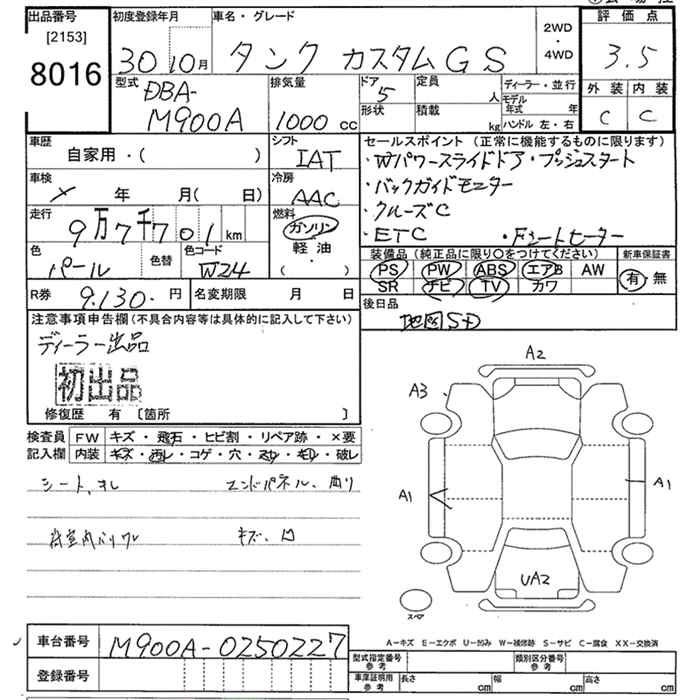 出品番号 [2153] 8016
初度登録年月 30 10月
車名・グレード タンク カスタムGS
2WD・4WD
評価点 3.5
外装 内装
C C
型式 DBA-M900A
排気量 1000 cc
ドア 5
定員 人
形状
積載 kg
ディーラー・並行
モデル年式 年
ハンドル 左・右
車歴 自家用・( )
シフト IAT
車検 × 年 月( 日)
冷房 AAC
走行 9万7千701 km
燃料 ガソリン 軽油・( )
色 パール
色替
色コード W24
R券 9.130- 円
名変期限 月 日
セールスポイント(正常に機能するものに限ります)
・Wパワースライドドア・プッシュスタート
・バックガイドモニター
・クルーズC
・ETC ・Fシートヒーター
装備品(純正品に限り○をつけてください)
新車保証書
PS PW ABS エアB AW 有・無
SR ナビ TV カワ
後日品 地図SD
注意事項申告欄(不具合内容等は具体的に記入して下さい)
ディーラー出品
初出品
修復歴 有 [箇所 ]
検査員記入欄
FW キズ・飛石・ヒビ割・リペア跡・×要
内装 キズ・汚レ・コゲ・穴・スレ・キレ・破レ
シート、オレ エンドパネル、曲り
荷室内バリワレ キズ、凹
A2
A3
A1
A1
UA2
スペア
車台番号 M900A-0250227
登録番号
A-キズ E-エクボ U-凹み W-補修跡 S-サビ C-腐食 XX-交換済
型式指定番号 参考 類別区分番号 参考
車庫証明用 参考 長さ cm 幅 cm 高さ cm